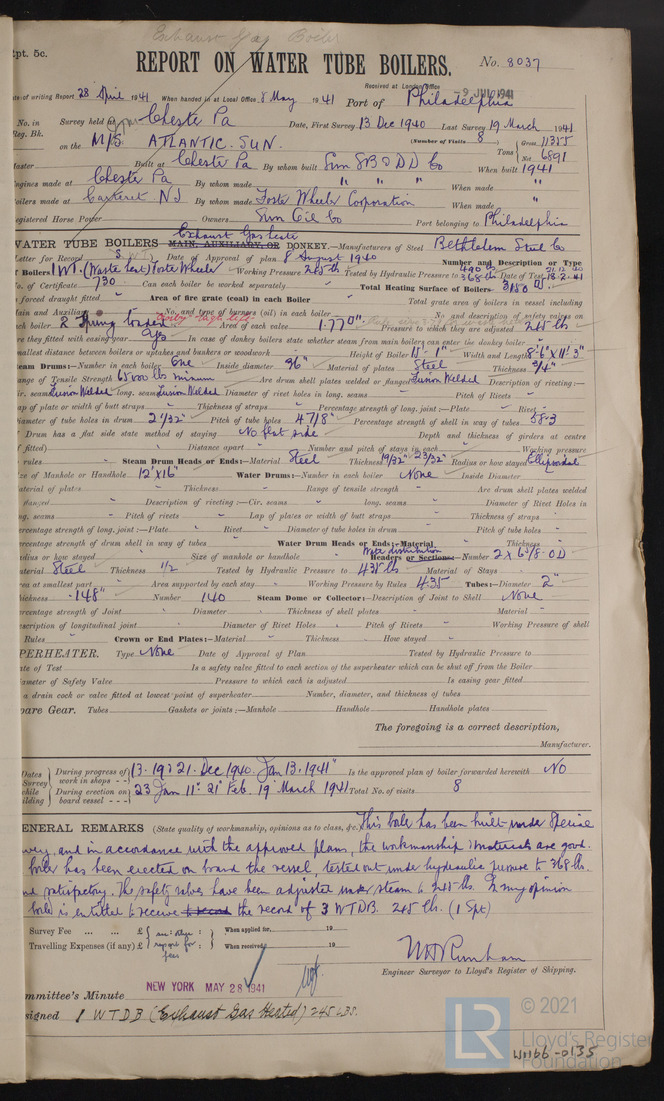 Exhaust Gas Boiler
Rpt. 5c.
REPORT ON WATER TUBE BOILERS.
No. 8037
Received at London Office
-9 JUL 1941
Date of writing Report 28 April 1941 When handed in at Local Office 8 May 1941 Port of Philadelphia
No. in Survey held at Chester Pa Date, First Survey 13 Dec 1940 Last Survey 19 March 1941
Reg. Bk.
(Number of Visits 8)
on the M/S. ATLANTIC SUN. Tons Gross 11355
Net 6891
Master Built at Chester Pa By whom built Sun SB & DD Co When built 1941
Engines made at Chester Pa By whom made " " " When made "
Boilers made at Carteret NJ By whom made Foster Wheeler Corporation When made "
Registered Horse Power Owners Sun Oil Co Port belonging to Philadelphia
Exhaust Gas Heated
WATER TUBE BOILERS MAIN, AUXILIARY, OR DONKEY.—Manufacturers of Steel Bethlehem Steel Co
Letter for Record S. Date of Approval of plan 8 August 1940 Number and Description or Type
of Boilers 1 WT. (Waste heat) Foster Wheeler Working Pressure 245 lb Tested by Hydraulic Pressure to 490 lb 368 lb Date of Test 21.12.40 18.2.41
No. of Certificate 730 Can each boiler be worked separately Total Heating Surface of Boilers 3150
is forced draught fitted Area of fire grate (coal) in each Boiler Total grate area of boilers in vessel including
Main and Auxiliary No. and type of burners (oil) in each boiler No. and description of safety valves on
each boiler 2 Spring loaded Area of each valve 1.77 Pressure to which they are adjusted 245 lb
are they fitted with easing gear yes In case of donkey boilers state whether steam from main boilers can enter the donkey boiler
Smallest distance between boilers or uptakes and bunkers or woodwork Height of Boiler 15'-1" Width and Length 8'-6" x 11'-3"
Steam Drums:—Number in each boiler One Inside diameter 36" Material of plates Steel Thickness 3/4"
Range of Tensile Strength 65000 lb minimum Are drum shell plates welded or flanged Fusion Welded Description of riveting:—
Cir. seams Fusion Welded long. seams Fusion Welded Diameter of rivet holes in long. seams Pitch of Rivets
Lap of plate or width of butt straps Thickness of straps Percentage strength of long. joint:—Plate Rivet
Diameter of tube holes in drum 2 1/32" Pitch of tube holes 4 7/8" Percentage strength of shell in way of tubes 58.3
If Drum has a flat side state method of staying No flat side Depth and thickness of girders at centre
(if fitted) Distance apart Number and pitch of stays in each Working pressure
by rules Steam Drum Heads or Ends:—Material Steel Thickness 19/32" - 23/32" Radius or how stayed Ellipsoidal
Size of Manhole or Handhole 12"x16" Water Drums:—Number in each boiler None Inside Diameter
Material of plates Thickness Range of tensile strength Are drum shell plates welded
or flanged Description of riveting:—Cir. seams long. seams Diameter of Rivet Holes in
long. seams Pitch of rivets Lap of plates or width of butt straps Thickness of straps
Percentage strength of long. joint:—Plate Rivet Diameter of tube holes in drum Pitch of tube holes
Percentage strength of drum shell in way of tubes Water Drum Heads or Ends:—Material Thickness
Radius or how stayed Size of manhole or handhole Water distribution Headers or Sections:—Number 2 x 6 5/8 OD
Material Steel Thickness 1/2 Tested by Hydraulic Pressure to 435 lb Material of Stays
Area at smallest part Area supported by each stay Working Pressure by Rules 435 Tubes:—Diameter 2"
Thickness .148" Number 140 Steam Dome or Collector:—Description of Joint to Shell None
Percentage strength of Joint Diameter Thickness of shell plates Material
Description of longitudinal joint Diameter of Rivet Holes Pitch of Rivets Working Pressure of shell
by Rules Crown or End Plates:—Material Thickness How stayed
SUPERHEATER. Type None Date of Approval of Plan Tested by Hydraulic Pressure to
Date of Test Is a safety valve fitted to each section of the superheater which can be shut off from the Boiler
Diameter of Safety Valve Pressure to which each is adjusted Is easing gear fitted
Is a drain cock or valve fitted at lowest point of superheater Number, diameter, and thickness of tubes
Spare Gear. Tubes Gaskets or joints:—Manhole Handhole Handhole plates
The foregoing is a correct description,
Manufacturer.
Dates of Survey while building During progress of work in shops 13. 19. 21. Dec 1940. Jan 13. 1941 Is the approved plan of boiler forwarded herewith No
During erection on board vessel 23 Jan 11. 21 Feb. 19 March 1941 Total No. of visits 8
GENERAL REMARKS (State quality of workmanship, opinions as to class, &c. This boiler has been built under Special
Survey, and in accordance with the approved plans, the workmanship & materials are good.
boiler has been erected on board the vessel, tested out under hydraulic pressure to 368 lb.
and satisfactory. The safety valves have been adjusted under steam to 245 lb. In my opinion
boiler is entitled to receive the record of 3 WTDB. 245 lb. (1 Spt)
Survey Fee ... ... £ see other When applied for, 19
Travelling Expenses (if any) £ report for fees When received, 19
Engineer Surveyor to Lloyd's Register of Shipping.
Committee's Minute NEW YORK MAY 28 1941
Assigned 1 WTDB (Exhaust Gas Heated) 245 LBS.
LR
© 2021
Lloyd's Register
Foundation
W1166-0135